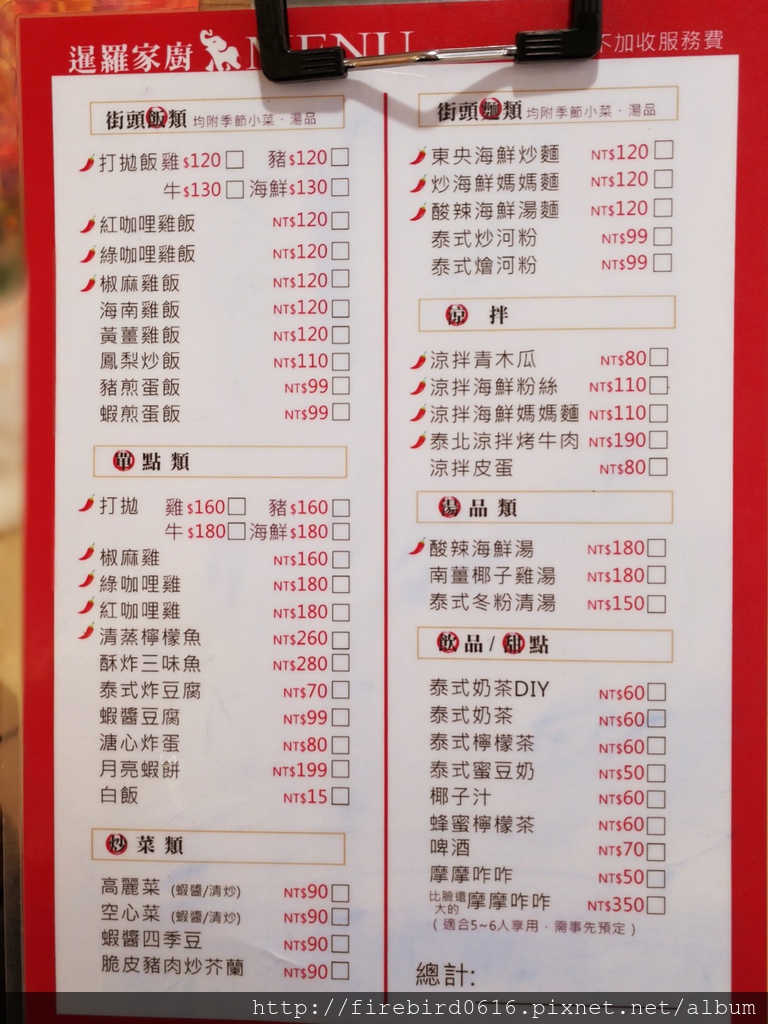 暹羅家廚 MENU
不加收服務費
街頭飯類 均附季節小菜、湯品
打拋飯 雞$120 豬$120
牛$130 海鮮$130
紅咖哩雞飯 NT$120
綠咖哩雞飯 NT$120
椒麻雞飯 NT$120
海南雞飯 NT$120
黃薑雞飯 NT$120
鳳梨炒飯 NT$110
豬煎蛋飯 NT$99
蝦煎蛋飯 NT$99
單點類
打拋 雞$160 豬$160
牛$180 海鮮$180
椒麻雞 NT$160
綠咖哩雞 NT$180
紅咖哩雞 NT$180
清蒸檸檬魚 NT$260
酥炸三味魚 NT$280
泰式炸豆腐 NT$70
蝦醬豆腐 NT$99
溏心炸蛋 NT$80
月亮蝦餅 NT$199
白飯 NT$15
炒菜類
高麗菜 (蝦醬/清炒) NT$90
空心菜 (蝦醬/清炒) NT$90
蝦醬四季豆 NT$90
脆皮豬肉炒芥蘭 NT$90
街頭麵類 均附季節小菜、湯品
東央海鮮炒麵 NT$120
炒海鮮媽媽麵 NT$120
酸辣海鮮湯麵 NT$120
泰式炒河粉 NT$99
泰式燴河粉 NT$99
涼拌
涼拌青木瓜 NT$80
涼拌海鮮粉絲 NT$110
涼拌海鮮媽媽麵 NT$110
泰北涼拌烤牛肉 NT$190
涼拌皮蛋 NT$80
湯品類
酸辣海鮮湯 NT$180
南薑椰子雞湯 NT$180
泰式冬粉清湯 NT$150
飲品/甜點
泰式奶茶DIY NT$60
泰式奶茶 NT$60
泰式檸檬茶 NT$60
泰式蜜豆奶 NT$50
椰子汁 NT$60
蜂蜜檸檬茶 NT$60
啤酒 NT$70
摩摩咋咋 NT$50
比臉還大的摩摩咋咋 NT$350
(適合5~6人享用，需事先預定)
總計:
http://firebird0616.pixnet.net/album